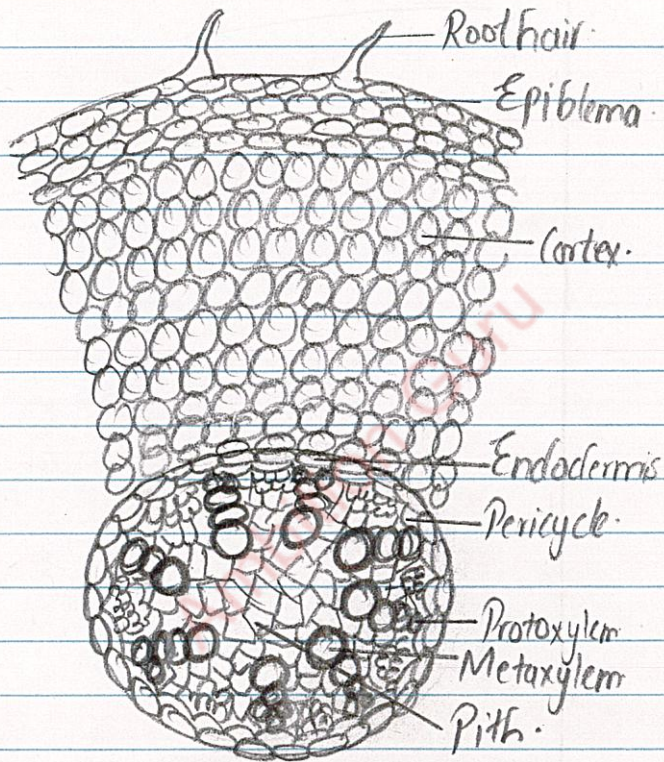 Root hair.
Epiblema.
Cortex.
Endodermis
Pericycle.
Protoxylem
Metaxylem
Pith.